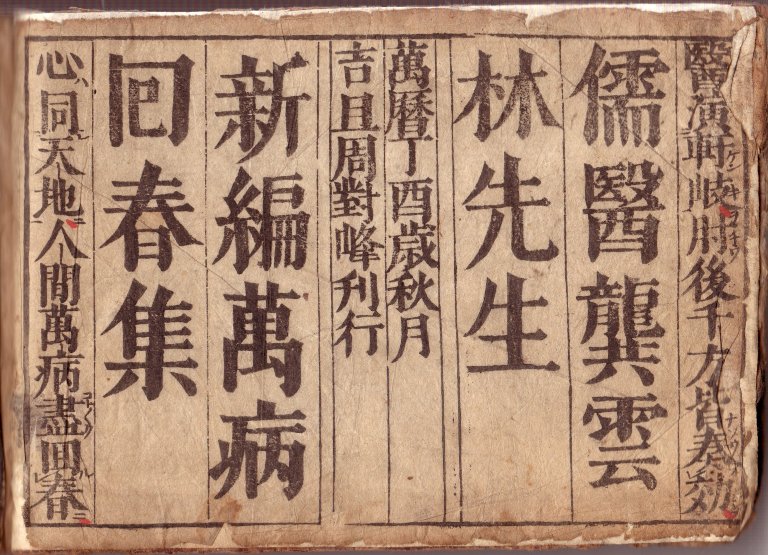 醫演軒岐肘後千方皆奏効
儒醫龔雲
林先生
萬曆丁酉歲秋月
吉旦周對峰刊行
新編萬病
回春集
心同天地人間萬病盡回春